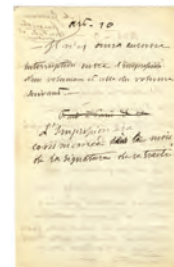 Art. 10
Il n'y aura aucune
interruption entre l'impression
d'un volume et celle du volume
suivant.
L'impression sera
commencée dans le mois
de la signature du traité